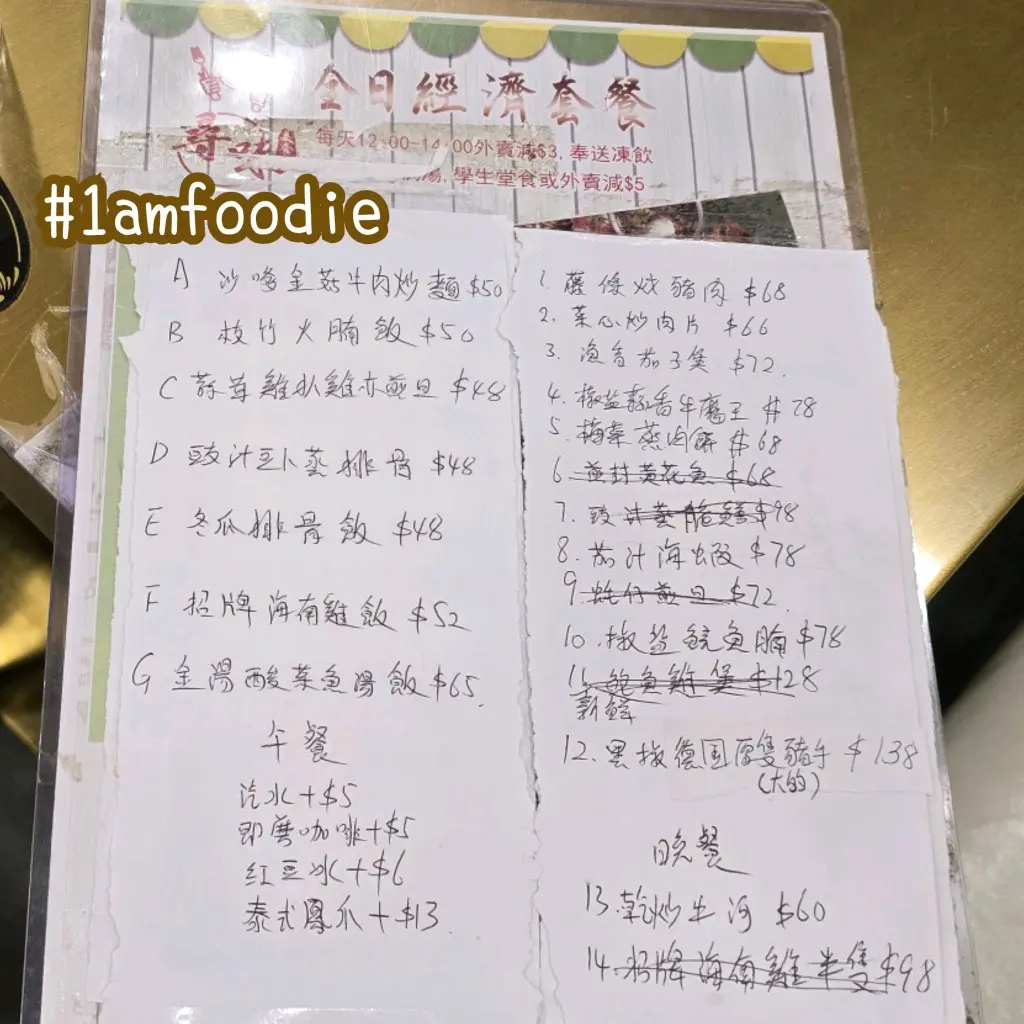 全日經濟套餐
每天12:00-14:00外賣減$3, 奉送凍飲
湯, 學生堂食或外賣減$5
#1amfoodie
A 沙嗲金菇牛肉炒麵 $50
B 枝竹火腩飯 $50
C 蒜茸雞扒雞亦煎旦 $48
D 豉汁豆卜蒸排骨 $48
E 冬瓜排骨飯 $48
F 招牌海南雞飯 $52
G 金湯酸菜魚湯飯 $65
午餐
汽水+$5
即磨咖啡+$5
红豆冰+$6
泰式鳳爪+$13
1. 藤條炆豬肉 $68
2. 菜心炒肉片 $66
3. 漁香茄子煲 $72
4. 椒盐蒜香牛魔王 $78
5. 梅菜蒸肉餅 $68
6. 煎封黄花魚 $68
7. 豉汁蒸脆鱔 $98
8. 茄汁海虾 $78
9. 蚝仔煎旦 $72
10. 椒盐鯇魚腩 $78
11. 鮑魚雞煲 $128
新鮮
12. 黑椒德国原隻豬手 $138
(大的)
晚餐
13. 乾炒牛河 $60
14. 招牌海南雞半隻 $98